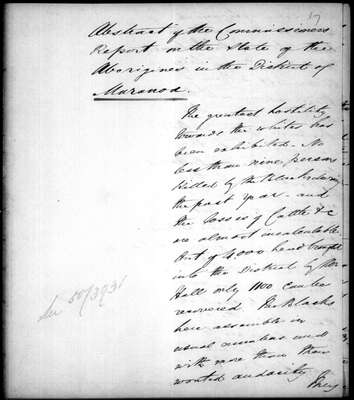 17
Abstract of the Commissioners
Report on the State of the
Aborigines in the District of
Maranoa.
The greatest hostility
towards the whites has
been exhibited. No
less than nine persons
killed by the Blacks during
the past year. and
the losses of Cattle &c
are almost incalculable.
Out of 4000 head brought
into the District by
Hall only 1100 can be
recovered. The Blacks
here assemble in
usual numbers and
with more than their
wonted audacity They
See 50/3931